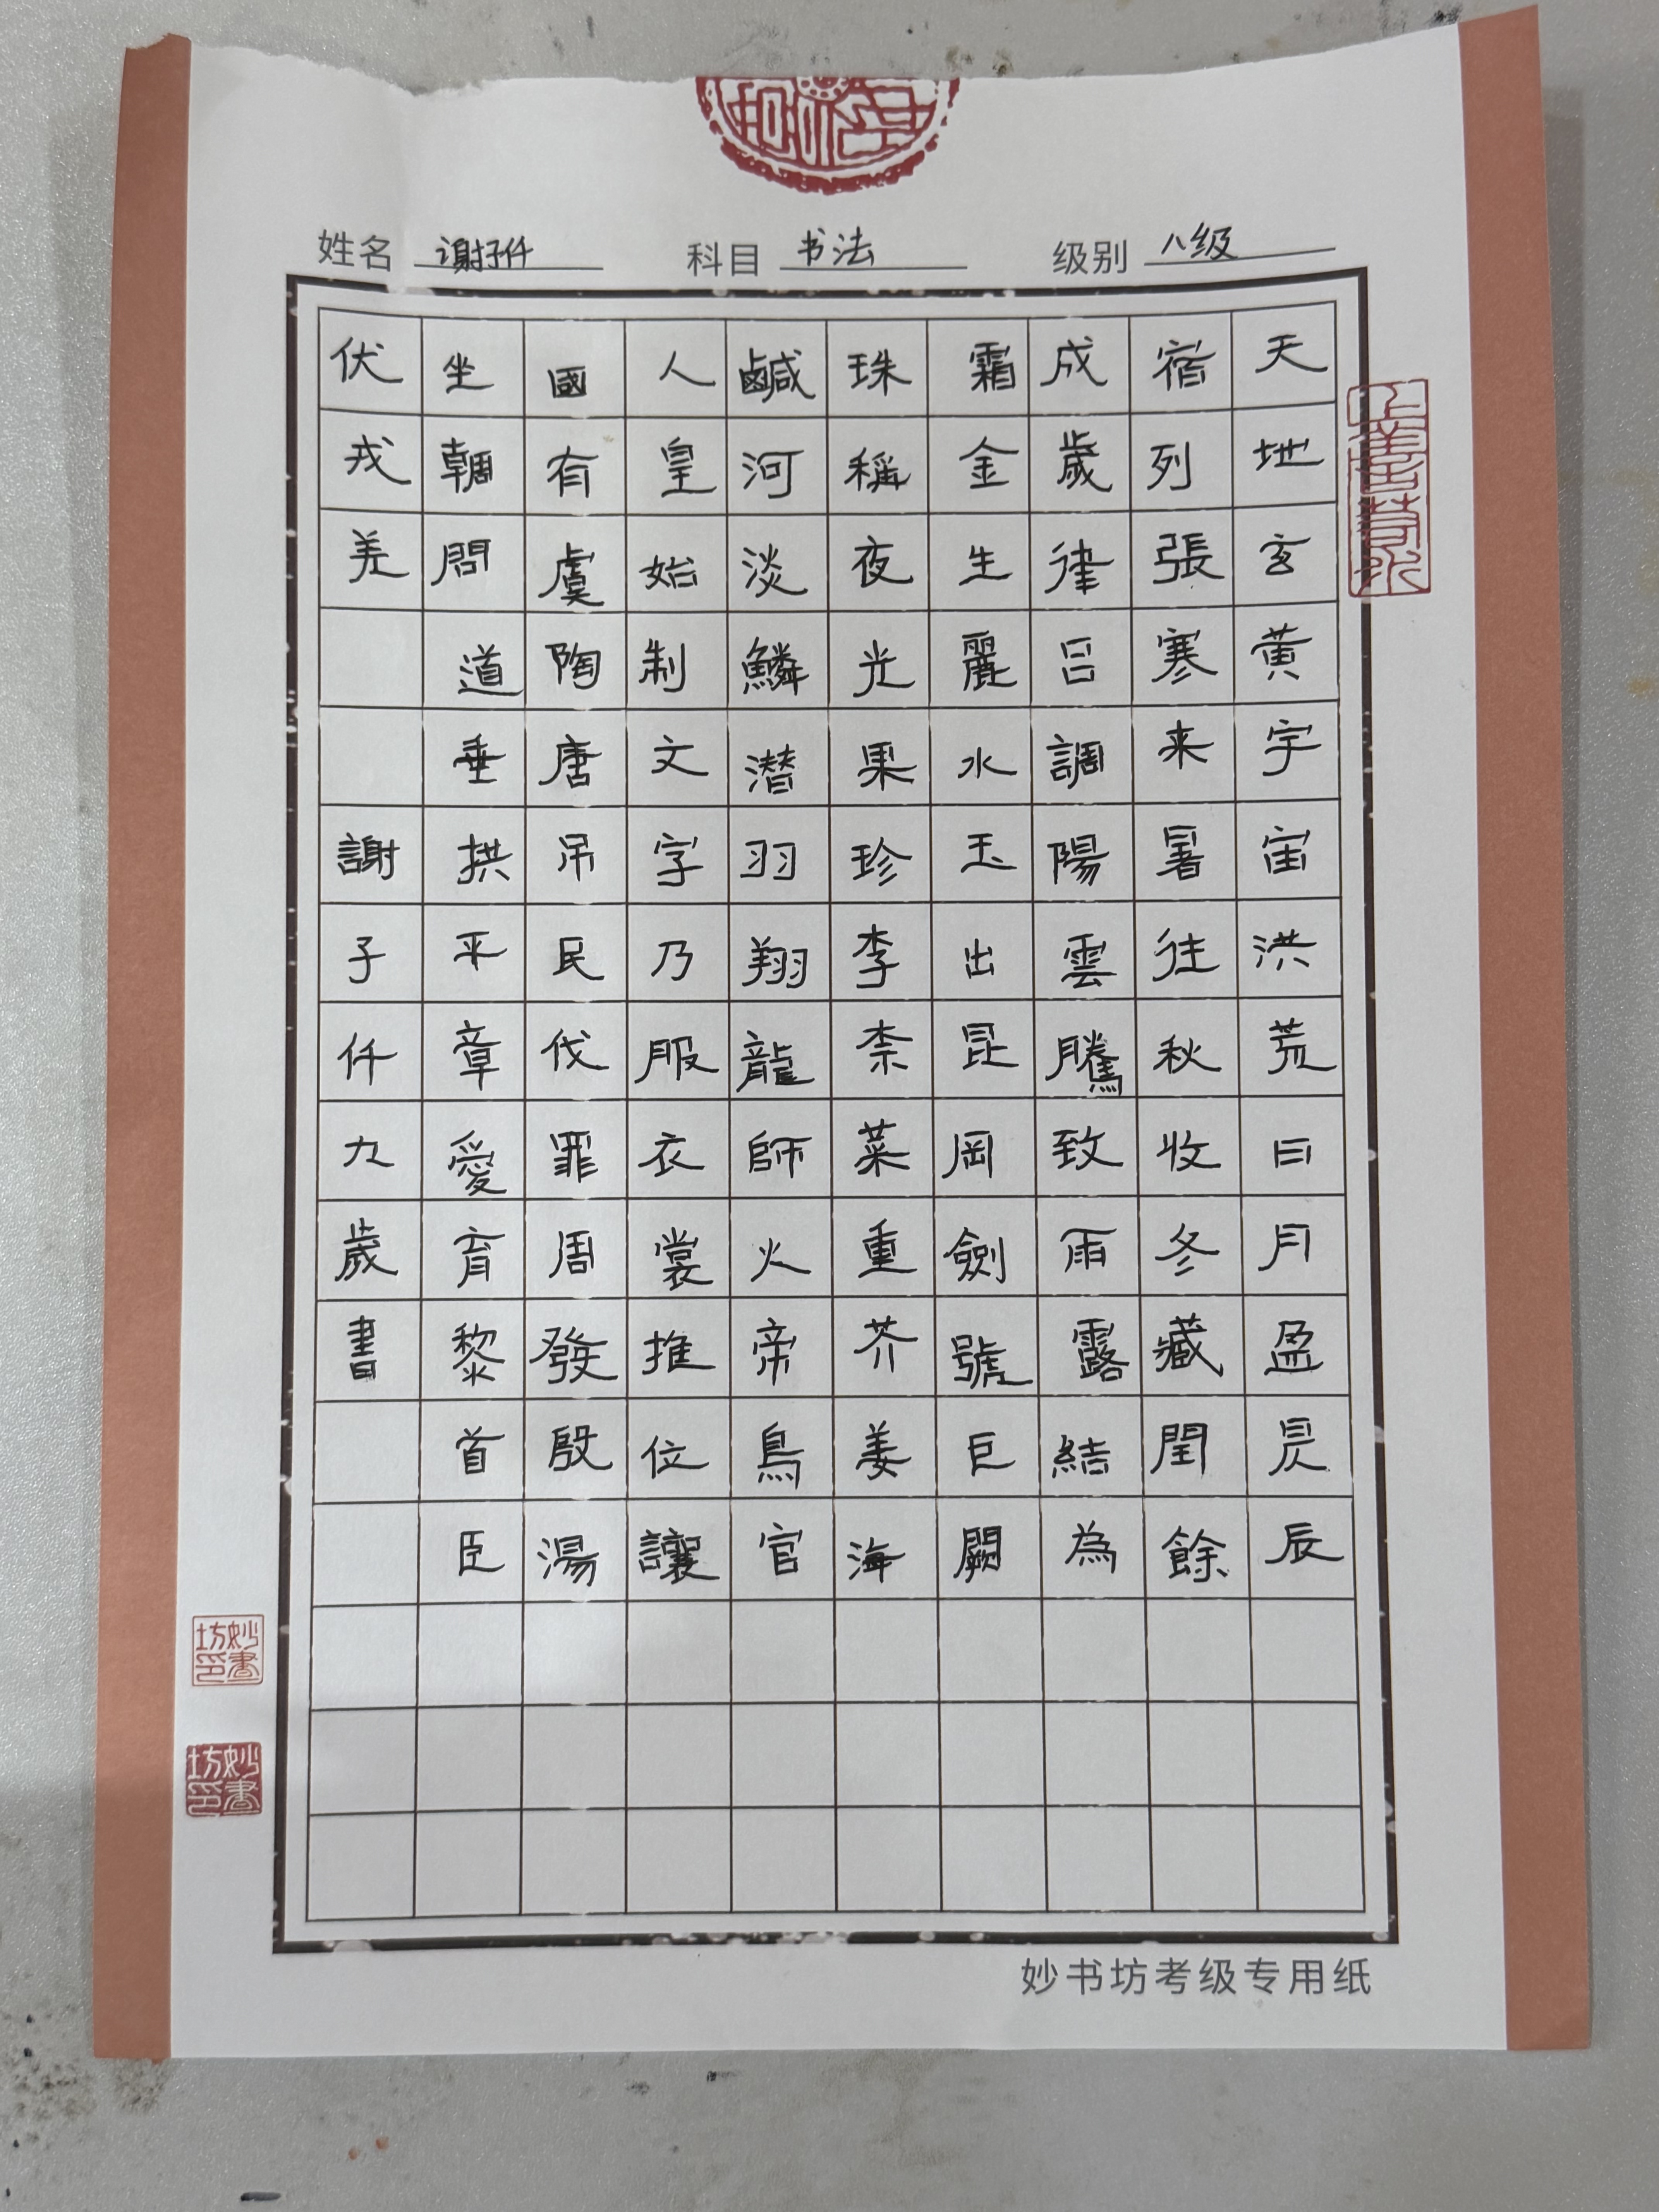 姓名 谢子仟 科目 书法 级别 八级
天地玄黄宇宙洪荒日月盈昃辰
宿列張寒来暑往秋收冬藏閏餘
成歲律吕調陽雲騰致雨露結為
霜金生麗水玉出昆岡劍號巨闕
珠稱夜光果珍李柰菜重芥姜海
鹹河淡鱗潜羽翔龍師火帝鳥官
人皇始制文字乃服衣裳推位讓
國有虞陶唐吊民伐罪周發殷湯
坐朝問道垂拱平章愛育黎首臣
伏戎羌
謝子仟九歲書
妙書坊印
妙書坊印
妙书坊考级专用纸